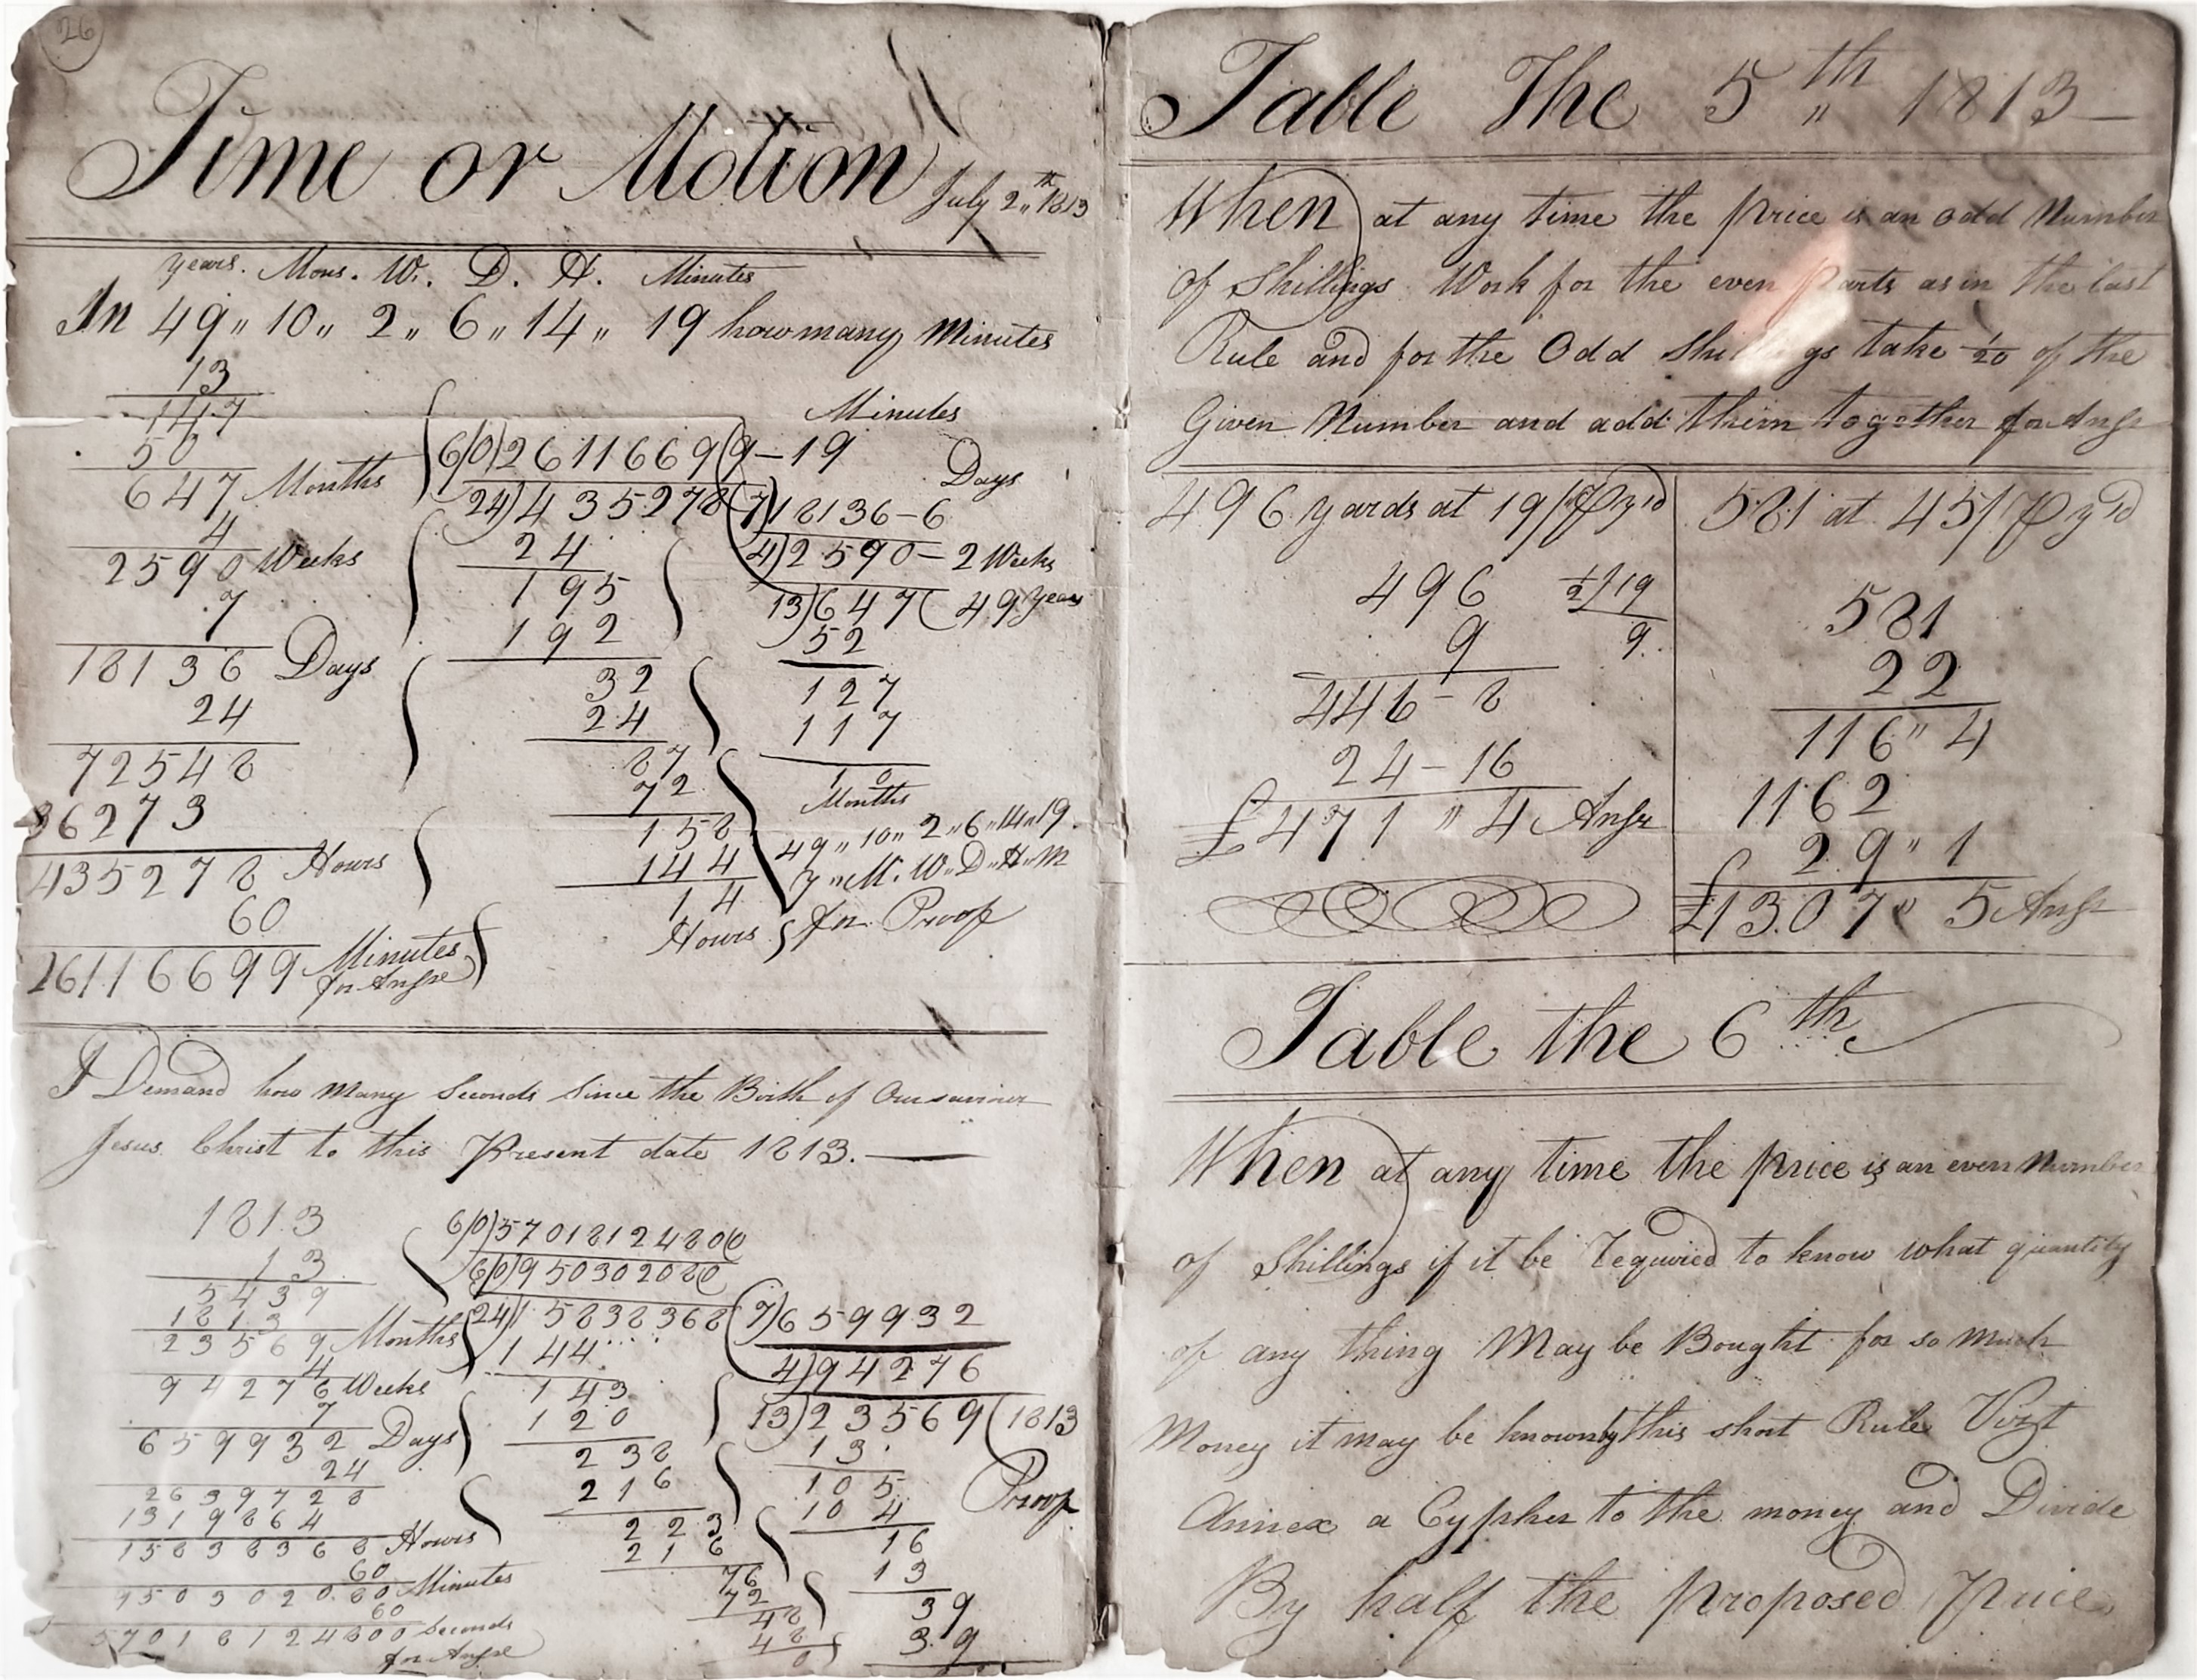 26
Time or Motion July 2„th 1813
years. Mons. W. D. H. Minutes
In 49„ 10„ 2„ 6„ 14„ 19 how many Minutes
13
147
50
647 Months
4
2590 Weeks
7
18136 Days
24
72548
36273
435278 Hours
60
26116699 Minutes
for Ansre
Minutes
6/0)2611669(9-19
Days
24)435278(7)18136-6
24
4)2590-2 Weeks
195
13)647(49 years
192
52
32
127
24
117
87
10
72
Months
158
49„ 10„ 2„ 6„ 14„ 19
144
y „ M. W„ D„ H„ M
14
Hours for Proof
I Demand how Many Seconds Since the Birth of Our saviour
Jesus Christ to this Present date 1813.
1813
13
5439
1813
23569 Months
4
94276 Weeks
7
659932 Days
24
2639728
1319864
15838368 Hours
60
950302080 Minutes
60
57018124800 Seconds
for Ansre
6/0)5701812480(0
6/0)95030208(0
24)15838368(7)659932
144
4)94276
143
13)23569(1813
120
13
238
105
216
104
Proof
223
16
216
13
76
39
72
39
48
48
0
Table The 5„th 1813
When at any time the price is an odd Number
of Shillings Work for the even Parts as in the last
Rule and for the Odd take 1/20 of the
Given Number and add them together for Ansr
496 yards at 19/ P yd
496 ½/19
9 9
446-8
24-16
£471 „ 4 Ansr
581 at 45/ P yd
581
22
116„ 4
1162
29„ 1
£1307„ 5 Ansr
Table the 6th
When at any time the price is an even Number
of Shillings if it be required to know what quantity
of any thing May be Bought for so Much
Money it may be known by this short Rule Vizt
Annex a Cypher to the money and Divide
By half the proposed Price